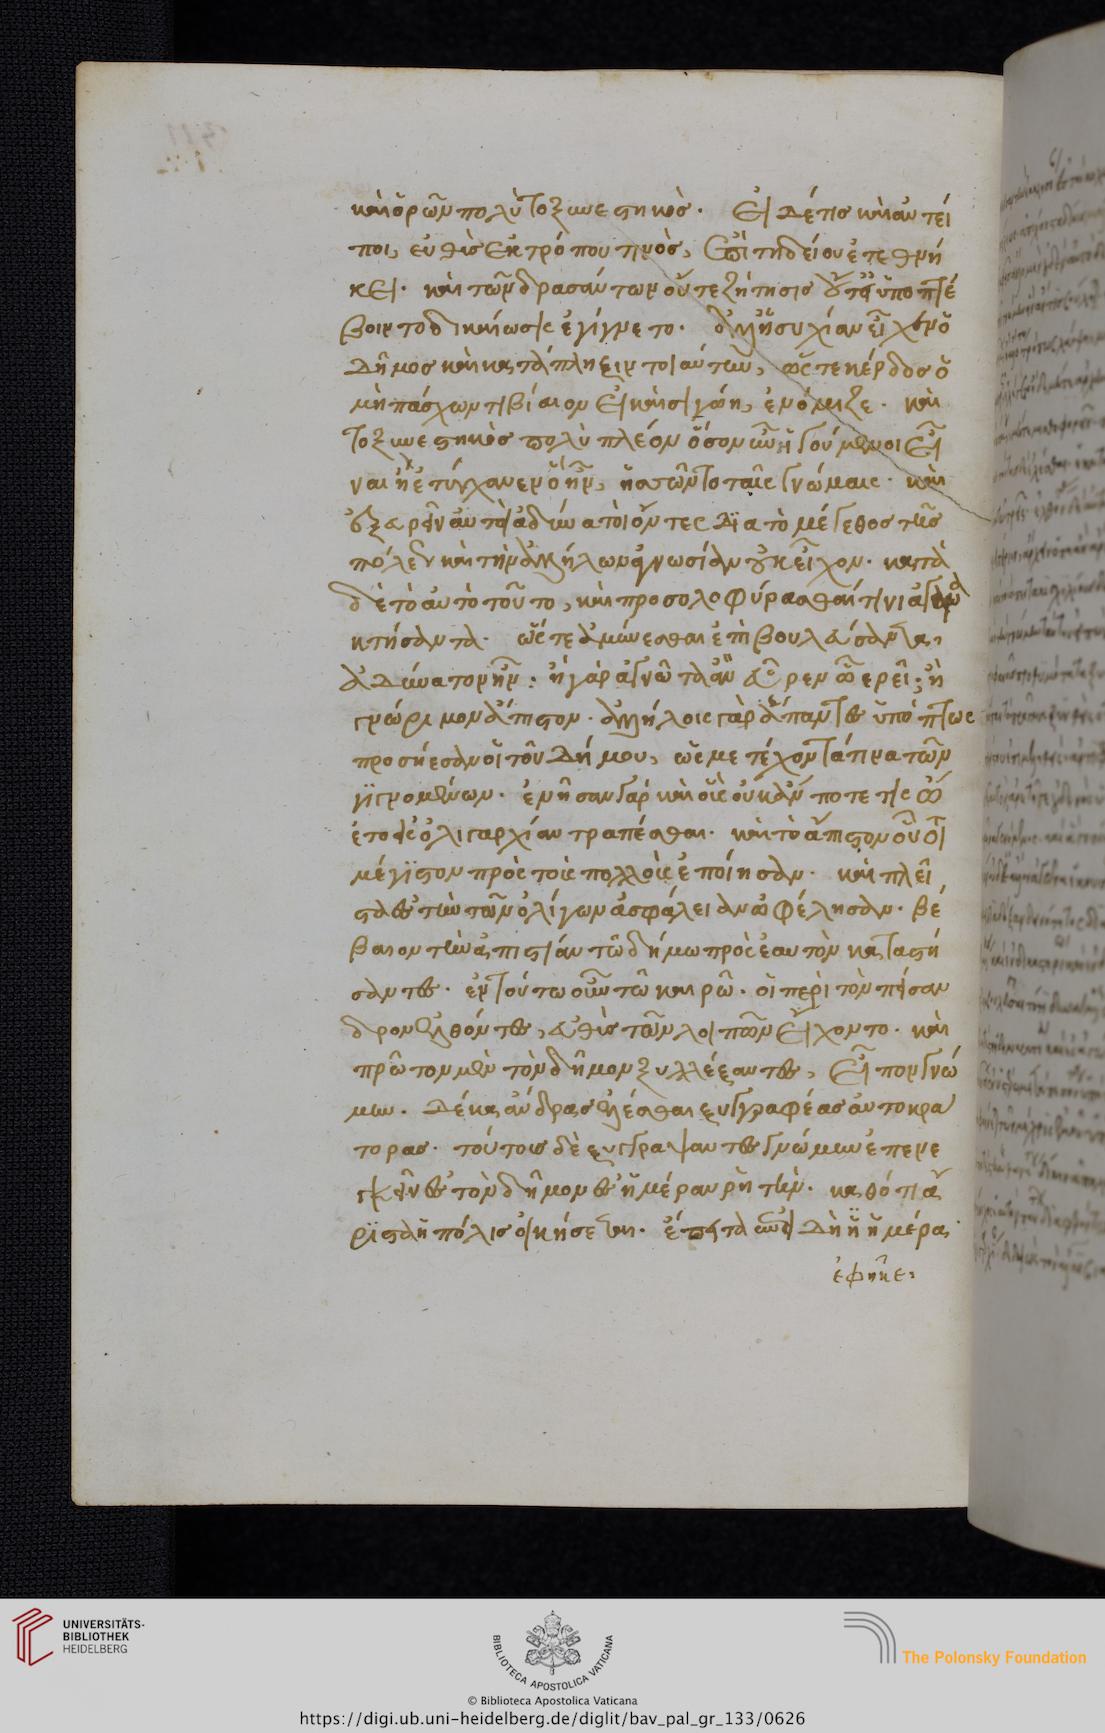 καὶ ὁρῶν πολὺ τὸ ξυνεστηκός. εἰ δέ τις καὶ ἀντεί
ποι, εὐθὺς ἐκ τρόπου τινὸς, ἐπιτηδείου ἐτεθνή
κει. καὶ τῶν δρασάντων οὔτε ζήτησις οὔτε εἰ ὑποπτεύ
οιντο δικαίωσις ἐγίγνετο. ἀλλ' ἡσυχίαν εἶχεν ὁ
δῆμος καὶ κατάπληξιν τοιαύτην, ὥστε κέρδος ὁ
μὴ πάσχων τι βίαιον εἰ καὶ σιγώη, ἐνόμιζε. καὶ
τὸ ξυνεστηκὸς πολὺ πλέον ὅσον ἡγούμενοι εἶ
ναι ἢ ἐτύγχανεν ὄν, ἡσσῶντο ταῖς γνώμαις. καὶ
ἐξευρεῖν αὐτὸ ἀδύνατοι ὄντες διὰ τὸ μέγεθος τῆς
πόλεως καὶ τὴν ἀλλήλων ἀγνωσίαν οὐκ εἶχον. κατὰ
δὲ τὸ αὐτὸ τοῦτο, καὶ προσολοφύρασθαί τινι ἀγανα
κτήσαντα. ὥστε ἀμύνεσθαι ἐπιβουλεύσαντα,
ἀδύνατον ἦν· ἢ γὰρ ἀγνῶτα ἂν εὗρεν ᾧ ἐρεῖ, ἢ
γνώριμον ἄπιστον. ἀλλήλοις γὰρ ἅπαντες ὑπόπτως
προσήεσαν οἱ τοῦ δήμου, ὡς μετέχοντά τινα τῶν
γιγνομένων. ἐνῆσαν γὰρ καὶ οὓς οὐκ ἄν ποτέ τις ᾤ
ετο ἐς ὀλιγαρχίαν τραπέσθαι. καὶ τὸ ἄπιστον οὗτοι
μέγιστον πρὸς τοὺς πολλοὺς ἐποίησαν. καὶ πλεῖ
στα ἐς τὴν τῶν ὀλίγων ἀσφάλειαν ὠφέλησαν. βέ
βαιον τὴν ἀπιστίαν τῷ δήμῳ πρὸς ἑαυτὸν καταστή
σαντες. ἐν τούτῳ οὖν τῷ καιρῷ. οἱ περὶ τὸν πείσαν
δρον ἐλθόντες, εὐθὺς τῶν λοιπῶν εἴχοντο. καὶ
πρῶτον μὲν τὸν δῆμον ξυλλέξαντες, εἶπον γνώ
μην. δέκα ἄνδρας ἑλέσθαι ξυγγραφέας αὐτοκρά
τορας. τούτους δὲ ξυγγράψαντες γνώμην ἐπενε
γκεῖν ἐς τὸν δῆμον ἐς ἡμέραν ῥητήν. καθότι ἄ
ριστα ἡ πόλις οἰκήσεται. ἔπειτα ἐπειδὴ ἡ ἡμέρα
ἐφῆκε,
UNIVERSITÄTS-
BIBLIOTHEK
HEIDELBERG
BIBLIOTECA APOSTOLICA VATICANA
The Polonsky Foundation
© Biblioteca Apostolica Vaticana
https://digi.ub.uni-heidelberg.de/diglit/bav_pal_gr_133/0626